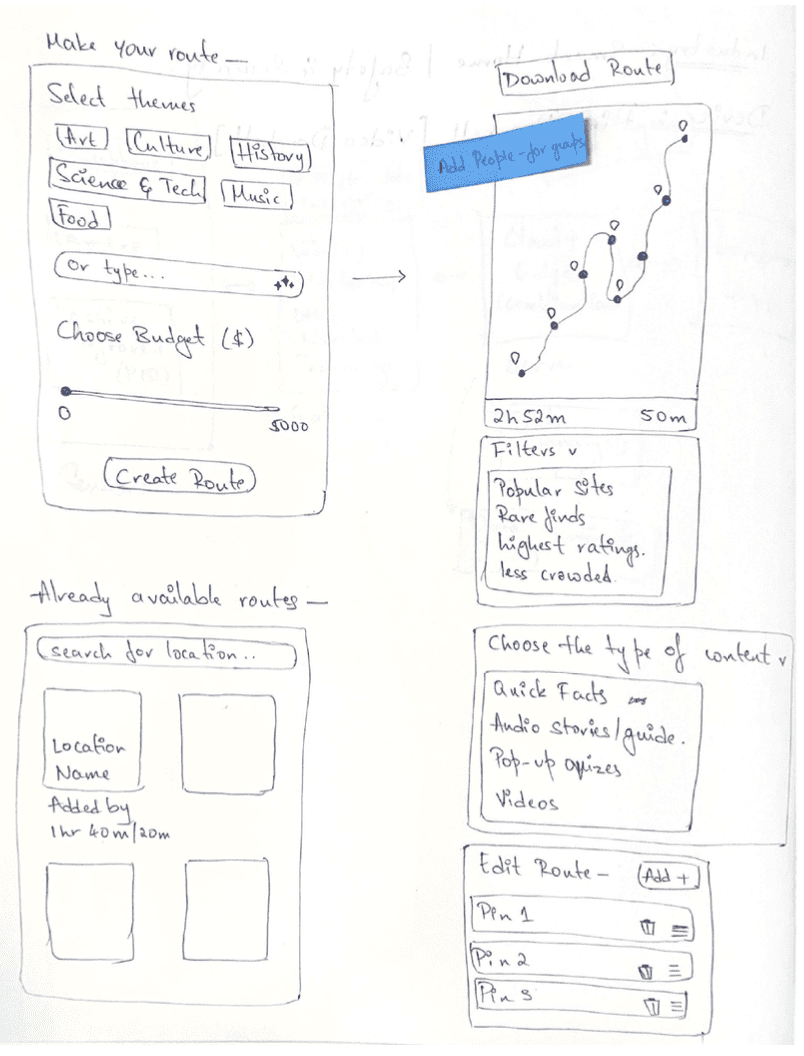 Make your route —
Select themes
Art
Culture
History
Science & Tech
Music
Food
Or type...
Choose Budget ($)
0
5000
Create Route
Already available routes —
search for location..
Location
Name
Added by
1hr 40m/20m
Download Route
Add People - for groups
2h 52m
50m
Filters v
Popular Sites
Rare finds
highest ratings.
less crowded.
Choose the type of content v
Quick Facts
Audio stories/guide.
Pop-up quizes
Videos
Edit Route —
Add +
Pin 1
Pin 2
Pin 3